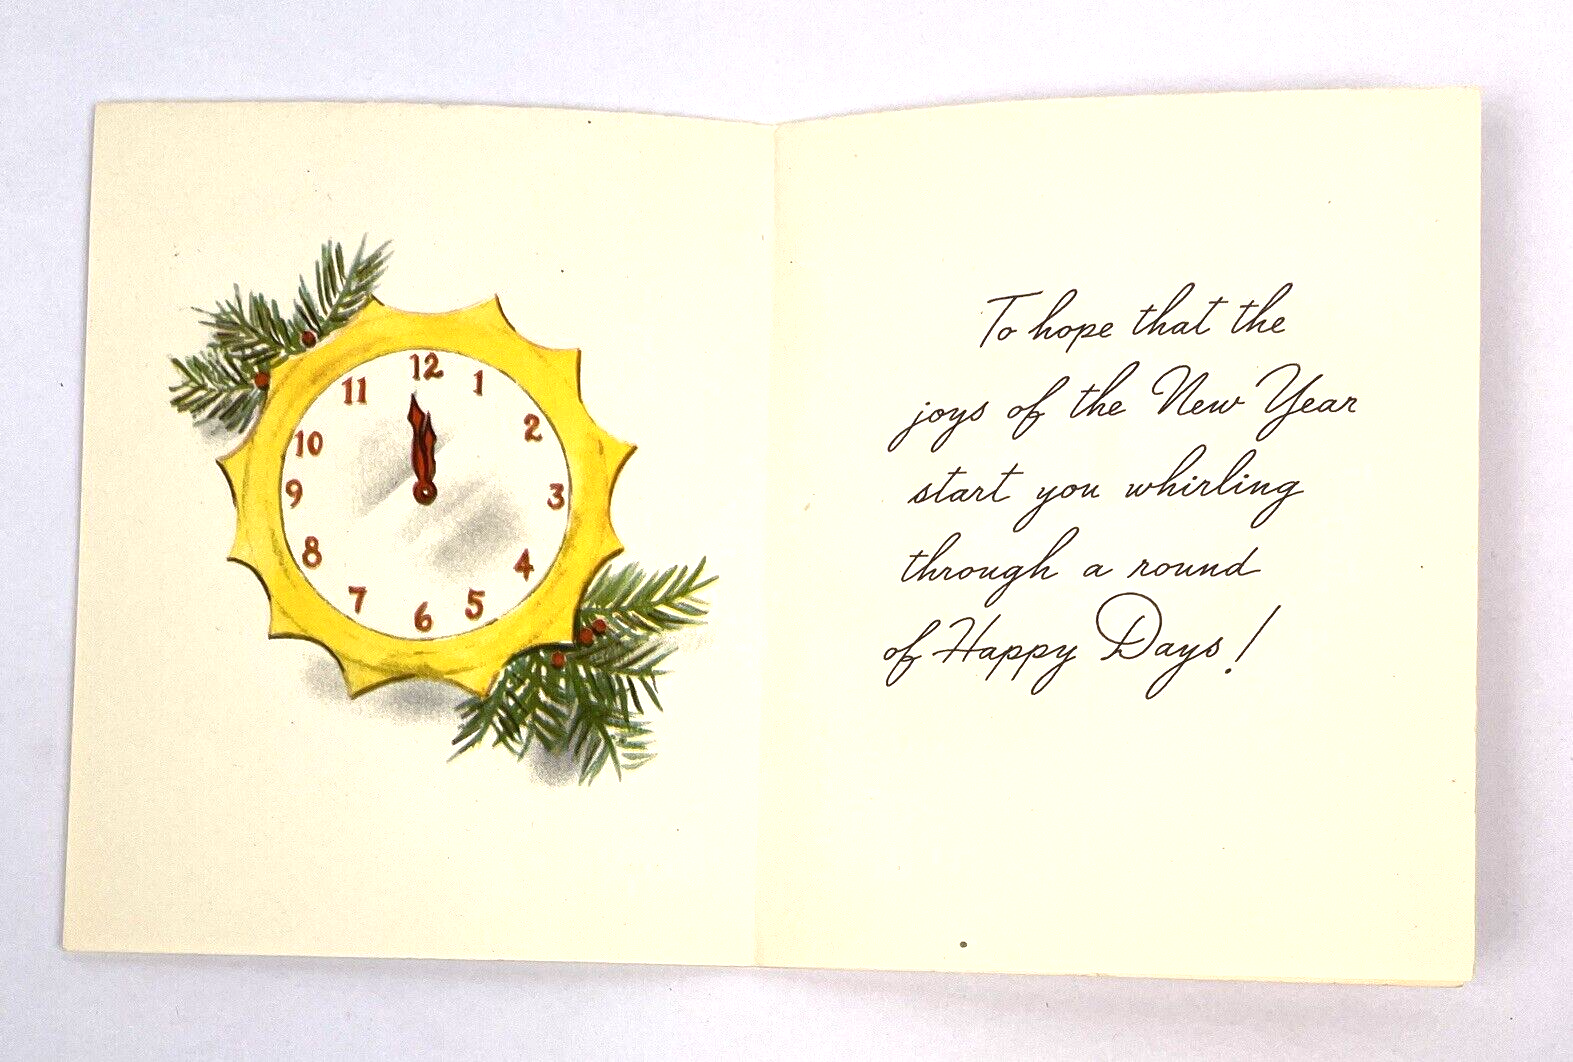 12
1
2
3
4
5
6
7
8
9
10
11
To hope that the
joys of the New Year
start you whirling
through a round
of Happy Days!